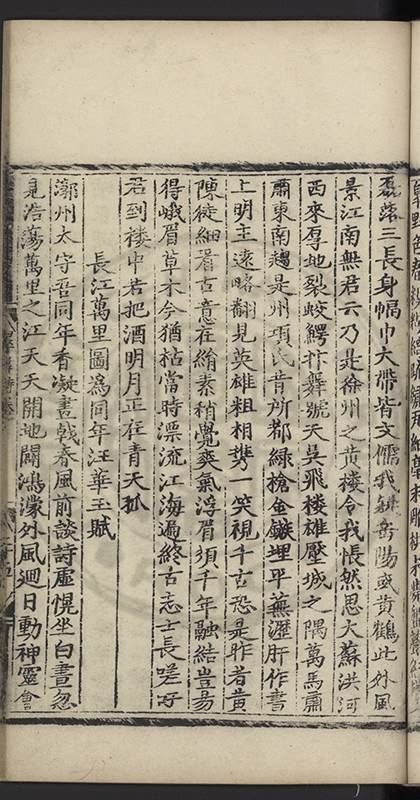 磊落三長身幅巾大帶皆文儒我疑岳陽或黃鶴此外風
景江南無君云乃是徐州之黃楼令我悵然思大蘇洪河
西來厚地裂蛟鰐抃舞號天吳飛楼雄壓城之隅萬馬肅
肅東南趨是州項氏昔所都綠槍金鏃埋平蕪瀝肝作書
上明主遠略翻見英雄粗相携一笑視千古恐是昨者黃
陳徒細看古意在絹素稍覺爽氣浮眉須千年融結豈易
得峨眉草木今猶枯當時漂流江海遍終古志士長嗟吁
君到楼中若把酒明月正在青天孤
長江萬里圖為同年汪華玉賦
漳州太守吾同年香凝晝戟春風前談詩虛幌坐白晝忽
見浩蕩萬里之江天天開地闢鴻濛外風迴日動神靈會